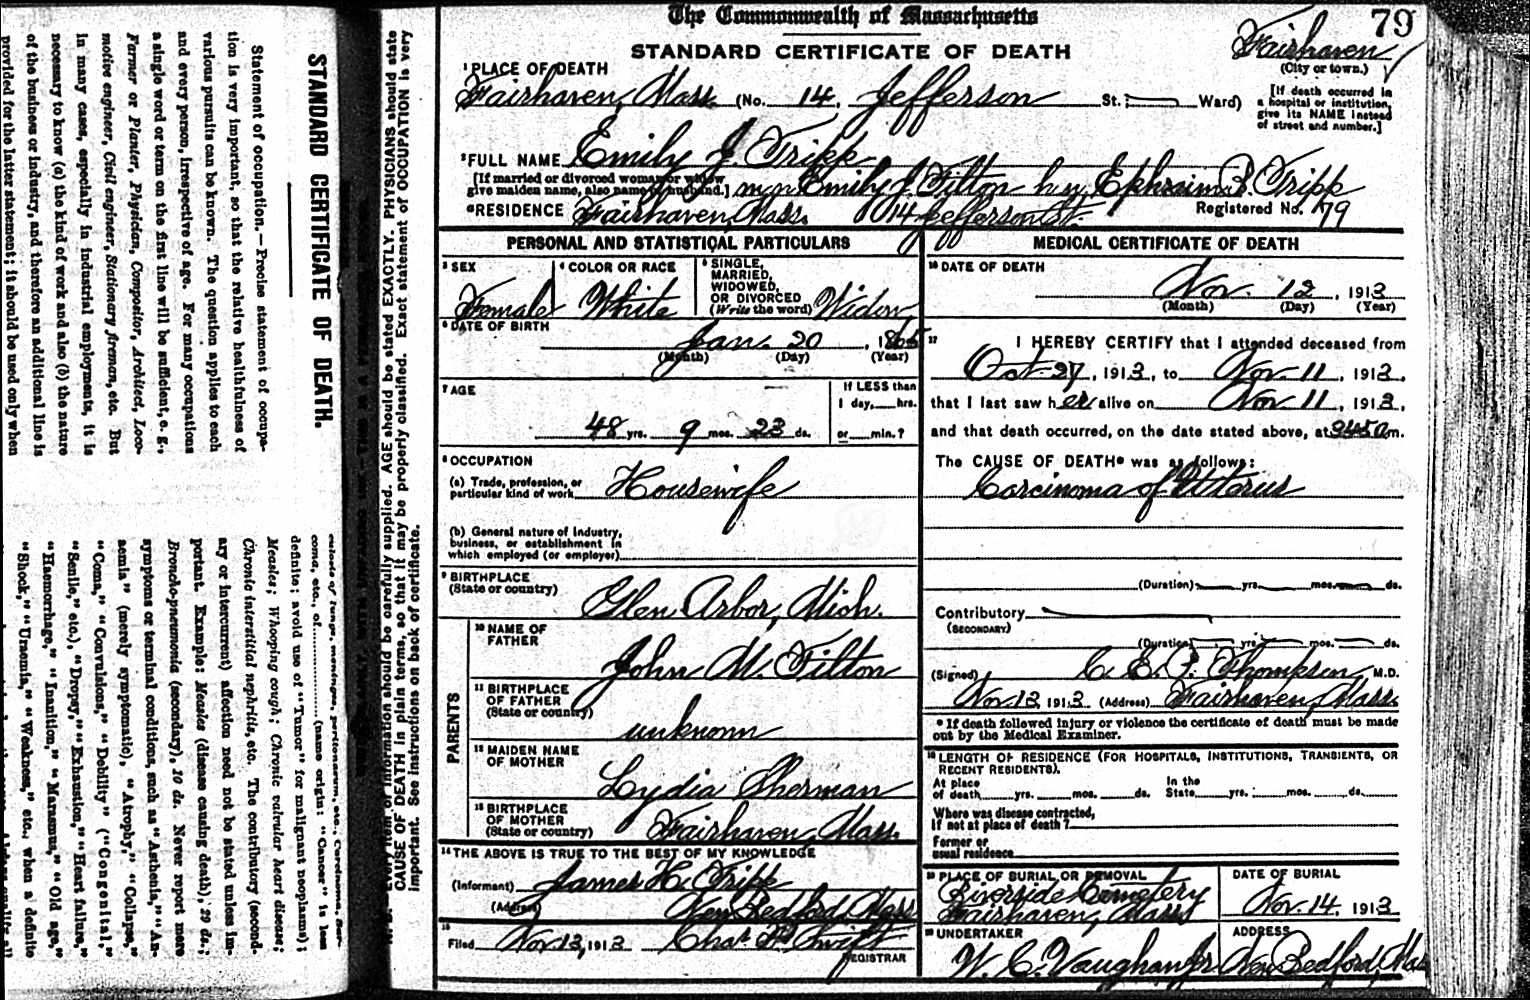 STANDARD CERTIFICATE OF DEATH.
Statement of occupation.—Precise statement of occupa-
tion is very important, so that the relative healthfulness of
various pursuits can be known. The question applies to each
and every person, irrespective of age. For many occupations
a single word or term on the first line will be sufficient, e. g.,
Farmer or Planter, Physician, Compositor, Architect, Loco-
motive engineer, Civil engineer, Stationary fireman, etc. But
in many cases, especially in industrial employments, it is
necessary to know (a) the kind of work and also (b) the nature
of the business or industry, and therefore an additional line is
provided for the latter statement; it should be used only when
coma, etc., of (name origin: "Cancer" is less
definite; avoid use of "Tumor" for malignant neoplasms);
Measles; Whooping cough; Chronic valvular heart disease;
Chronic interstitial nephritis, etc. The contributory (second-
ary or intercurrent) affection need not be stated unless im-
portant. Example: Measles (disease causing death), 29 ds.;
Broncho-pneumonia (secondary), 10 ds. Never report mere
symptoms or terminal conditions, such as "Asthenia," "An-
aemia" (merely symptomatic), "Atrophy," "Collapse,"
"Coma," "Convulsions," "Debility" ("Congenital,"
"Senile," etc.), "Dropsy," "Exhaustion," "Heart failure,"
"Haemorrhage," "Inanition," "Marasmus," "Old age,"
"Shock," "Uraemia," "Weakness," etc., when a definite
Every item of information should be carefully supplied. AGE should be stated EXACTLY. PHYSICIANS should state
CAUSE OF DEATH in plain terms, so that it may be properly classified. Exact statement of OCCUPATION is very
important. See instructions on back of certificate.
The Commonwealth of Massachusetts
79
STANDARD CERTIFICATE OF DEATH
Fairhaven
(City or town.)
1 PLACE OF DEATH
Fairhaven, Mass. (No. 14, Jefferson St.; Ward)
[If death occurred in
a hospital or institution,
give its NAME instead
of street and number.]
2 FULL NAME Emily J. Tripp
[If married or divorced woman or widow
give maiden name, also name of husband.] Emily J. Tilton Ephraim B. Tripp
RESIDENCE Fairhaven, Mass. 14 Jefferson St. Registered No. 79
PERSONAL AND STATISTICAL PARTICULARS
3 SEX
Female
4 COLOR OR RACE
White
5 SINGLE,
MARRIED,
WIDOWED,
OR DIVORCED
(Write the word) Widow
6 DATE OF BIRTH
Jan. 20, 1865
(Month) (Day) (Year)
7 AGE
48 yrs. 9 mos. 23 ds.
If LESS than
1 day, hrs.
or min.?
8 OCCUPATION
(a) Trade, profession, or
particular kind of work Housewife
(b) General nature of industry,
business, or establishment in
which employed (or employer)
9 BIRTHPLACE
(State or country)
Glen Arbor, Mich.
PARENTS
10 NAME OF
FATHER
John M. Tilton
11 BIRTHPLACE
OF FATHER
(State or country)
unknown
12 MAIDEN NAME
OF MOTHER
Lydia Sherman
13 BIRTHPLACE
OF MOTHER
(State or country) Fairhaven, Mass.
14 THE ABOVE IS TRUE TO THE BEST OF MY KNOWLEDGE
(Informant) James H. Tripp
(Address) New Bedford, Mass
15
Filed Nov 13, 1913 Chas. F. Swift
REGISTRAR
MEDICAL CERTIFICATE OF DEATH
16 DATE OF DEATH
Nov. 12, 1913
(Month) (Day) (Year)
17 I HEREBY CERTIFY that I attended deceased from
Oct. 27, 1913, to Nov. 11, 1913,
that I last saw her alive on Nov. 11, 1913,
and that death occurred, on the date stated above, at m.
The CAUSE OF DEATH* was as follows:
Carcinoma of Uterus
(Duration) yrs. mos. ds.
Contributory
(SECONDARY)
(Duration) yrs. mos. ds.
(Signed) C. E. P. Thompson, M.D.
Nov 13, 1913 (Address) Fairhaven, Mass.
* If death followed injury or violence the certificate of death must be made
out by the Medical Examiner.
18 LENGTH OF RESIDENCE (FOR HOSPITALS, INSTITUTIONS, TRANSIENTS, OR
RECENT RESIDENTS).
At place In the
of death yrs. mos. ds. State yrs. mos. ds.
Where was disease contracted,
if not at place of death?
Former or
usual residence
19 PLACE OF BURIAL OR REMOVAL
Riverside Cemetery
Fairhaven, Mass
DATE OF BURIAL
Nov. 14, 1913
20 UNDERTAKER
W. C. Vaughan Jr.
ADDRESS
New Bedford, Mass